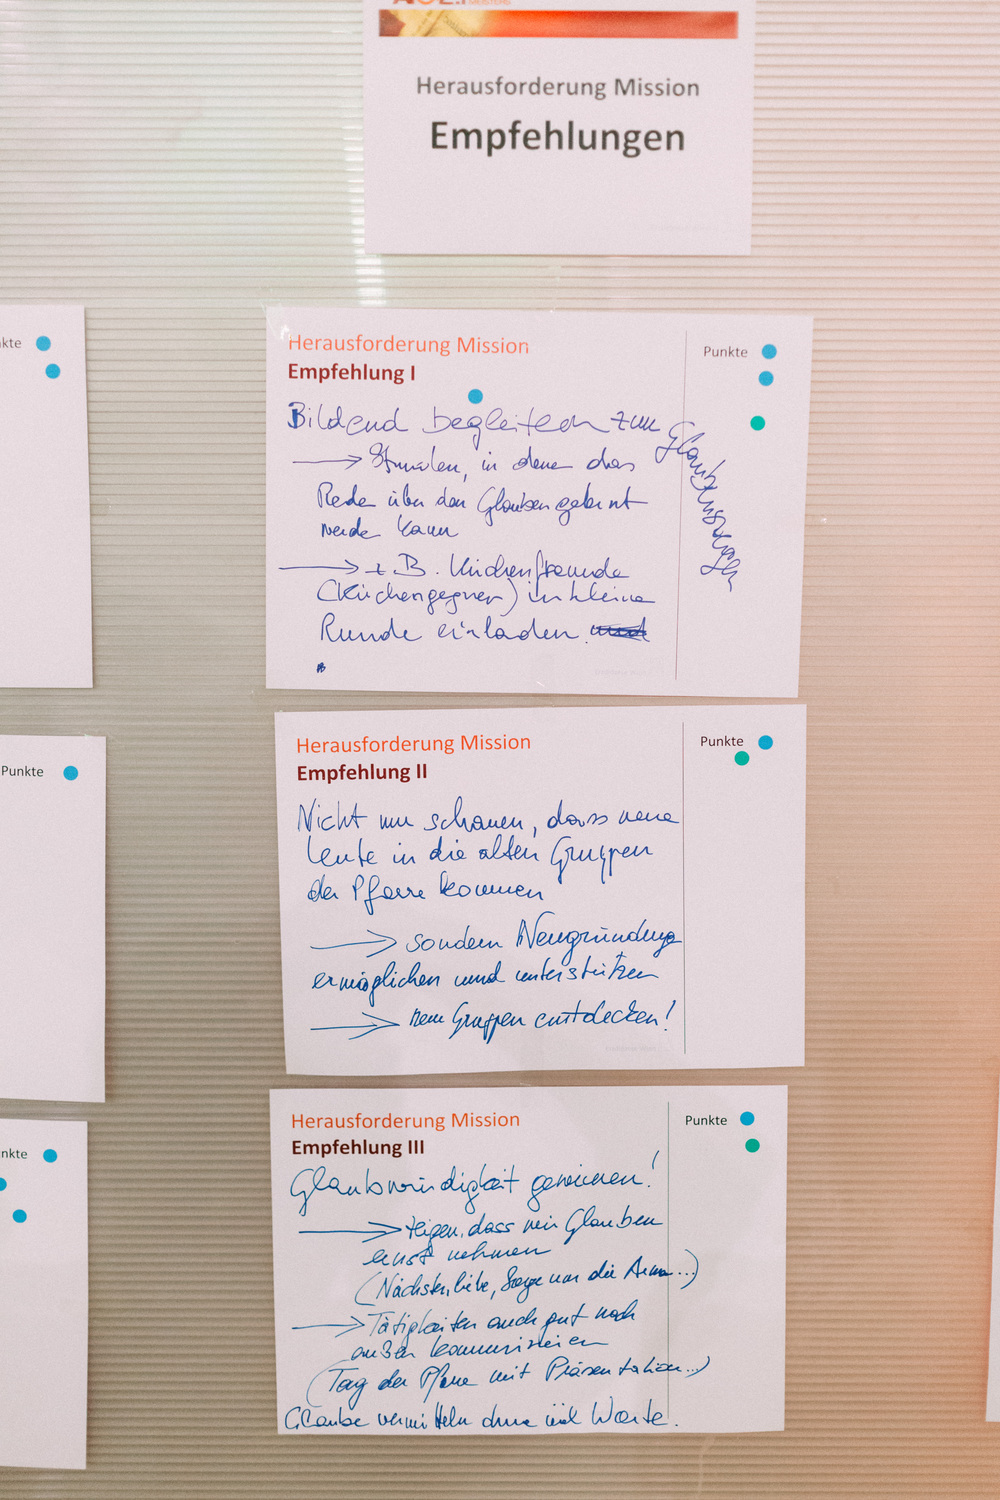 Herausforderung Mission
Empfehlungen
Punkte
Herausforderung Mission
Empfehlung I
Punkte
Bildend begleiten zum
→ Stunden, in denen das
Rede über den Glauben gelernt
werden kann
→ z.B. Kirchenfremde
(Kirchengegner) in kleine
Runde einladen.
Punkte
Herausforderung Mission
Empfehlung II
Punkte
Nicht nur schauen, dass neue
Leute in die alten Gruppen
der Pfarre kommen
→ sondern Neugründung
ermöglichen und unterstützen
→ neue Gruppen entdecken!
nkte
Herausforderung Mission
Empfehlung III
Punkte
Glaubwürdigkeit gewinnen!
→ zeigen, dass wir Glauben
ernst nehmen
(Nächstenliebe, Sorge um die Armen...)
→ Tätigkeiten auch gut nach
außen kommunizieren
(Tag der Pfarre mit Präsentation...)
Glaube vermitteln ohne viel Worte.